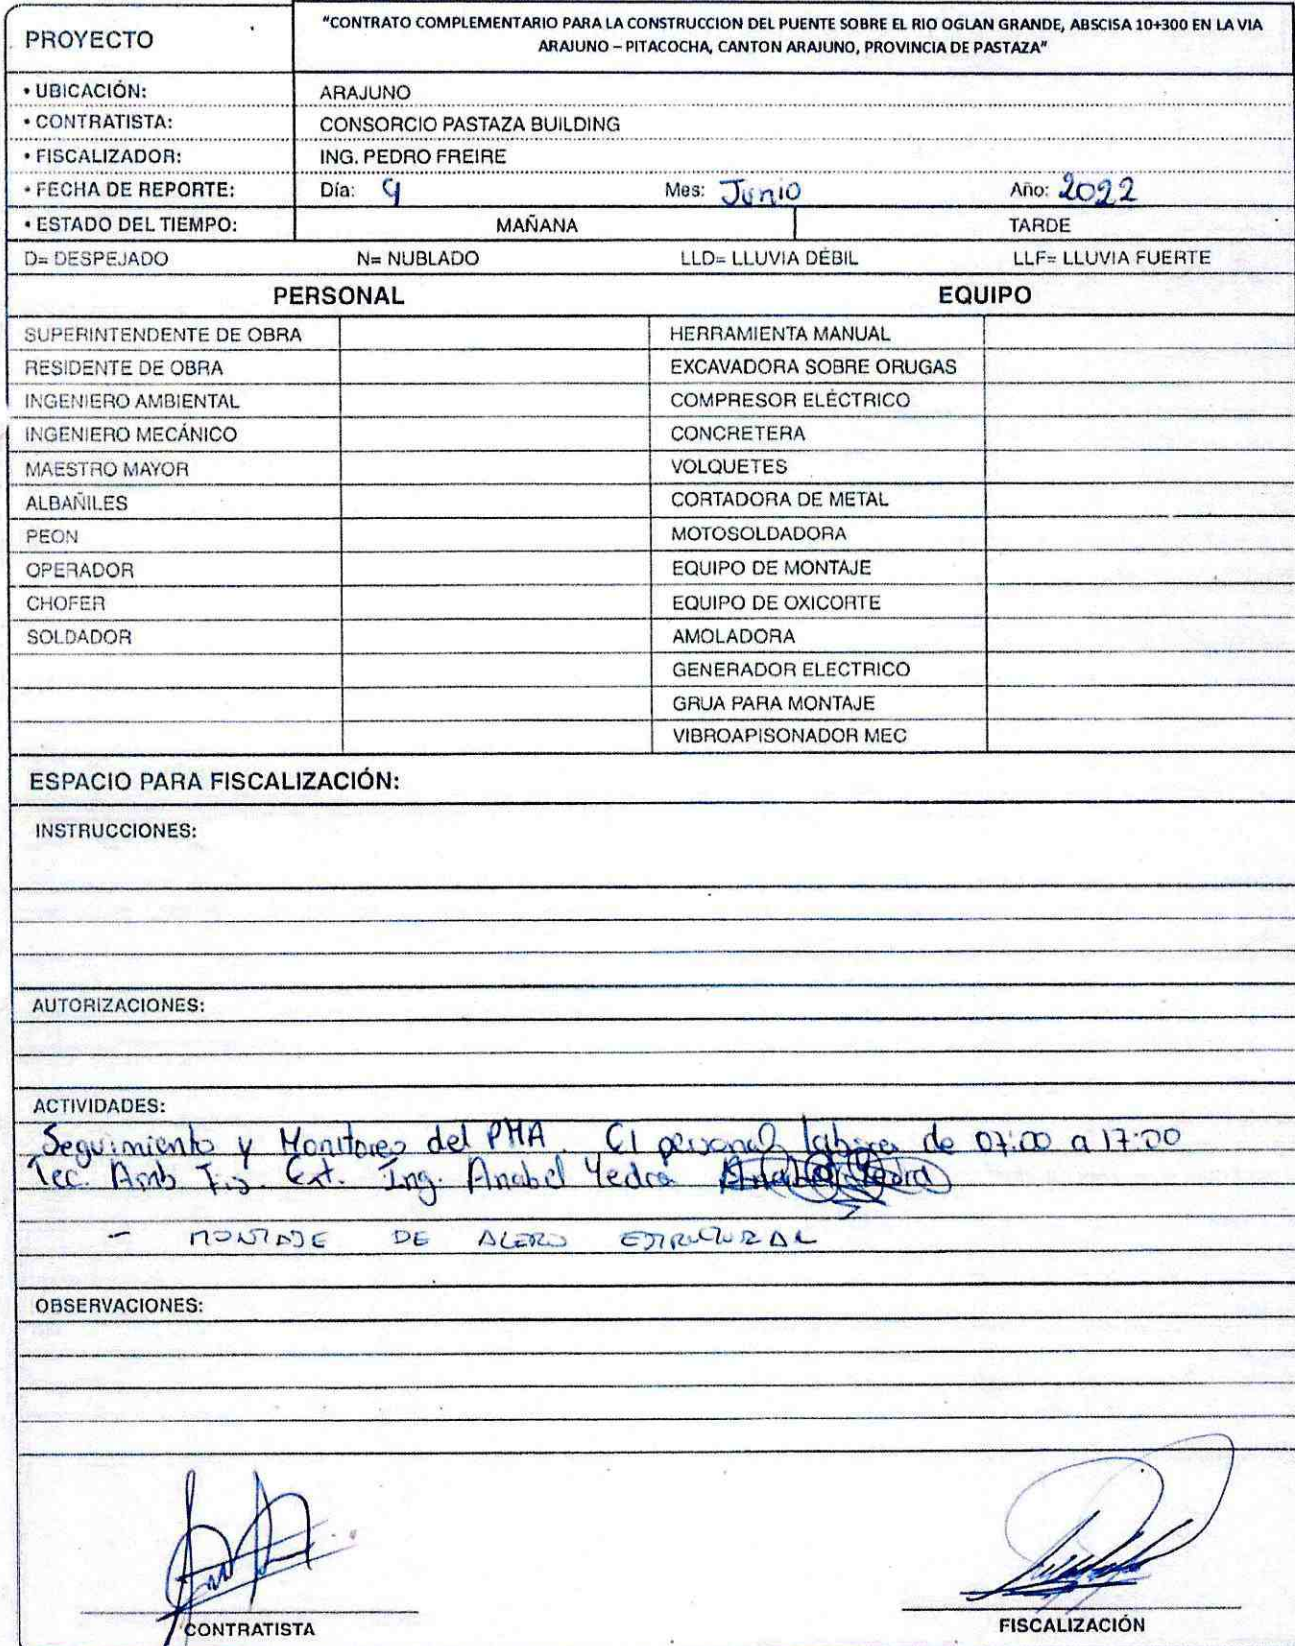 PROYECTO
"CONTRATO COMPLEMENTARIO PARA LA CONSTRUCCION DEL PUENTE SOBRE EL RIO OGLAN GRANDE, ABSCISA 10+300 EN LA VIA
ARAJUNO – PITACOCHA, CANTON ARAJUNO, PROVINCIA DE PASTAZA"
• UBICACIÓN: ARAJUNO
• CONTRATISTA: CONSORCIO PASTAZA BUILDING
• FISCALIZADOR: ING. PEDRO FREIRE
• FECHA DE REPORTE: Día: 9 Mes: Junio Año: 2022
• ESTADO DEL TIEMPO: MAÑANA TARDE
D= DESPEJADO N= NUBLADO LLD= LLUVIA DÉBIL LLF= LLUVIA FUERTE
PERSONAL EQUIPO
SUPERINTENDENTE DE OBRA HERRAMIENTA MANUAL
RESIDENTE DE OBRA EXCAVADORA SOBRE ORUGAS
INGENIERO AMBIENTAL COMPRESOR ELÉCTRICO
INGENIERO MECÁNICO CONCRETERA
MAESTRO MAYOR VOLQUETES
ALBAÑILES CORTADORA DE METAL
PEON MOTOSOLDADORA
OPERADOR EQUIPO DE MONTAJE
CHOFER EQUIPO DE OXICORTE
SOLDADOR AMOLADORA
GENERADOR ELECTRICO
GRUA PARA MONTAJE
VIBROAPISONADOR MEC
ESPACIO PARA FISCALIZACIÓN:
INSTRUCCIONES:
AUTORIZACIONES:
ACTIVIDADES:
Seguimiento y Monitoreo del PMA. El personal labora de 07:00 a 17:00
Tec. Amb Fis. Ext. Ing. Anabel Yedra
- MONTAJE DE ACERO ESTRUCTURAL
OBSERVACIONES:
CONTRATISTA FISCALIZACIÓN